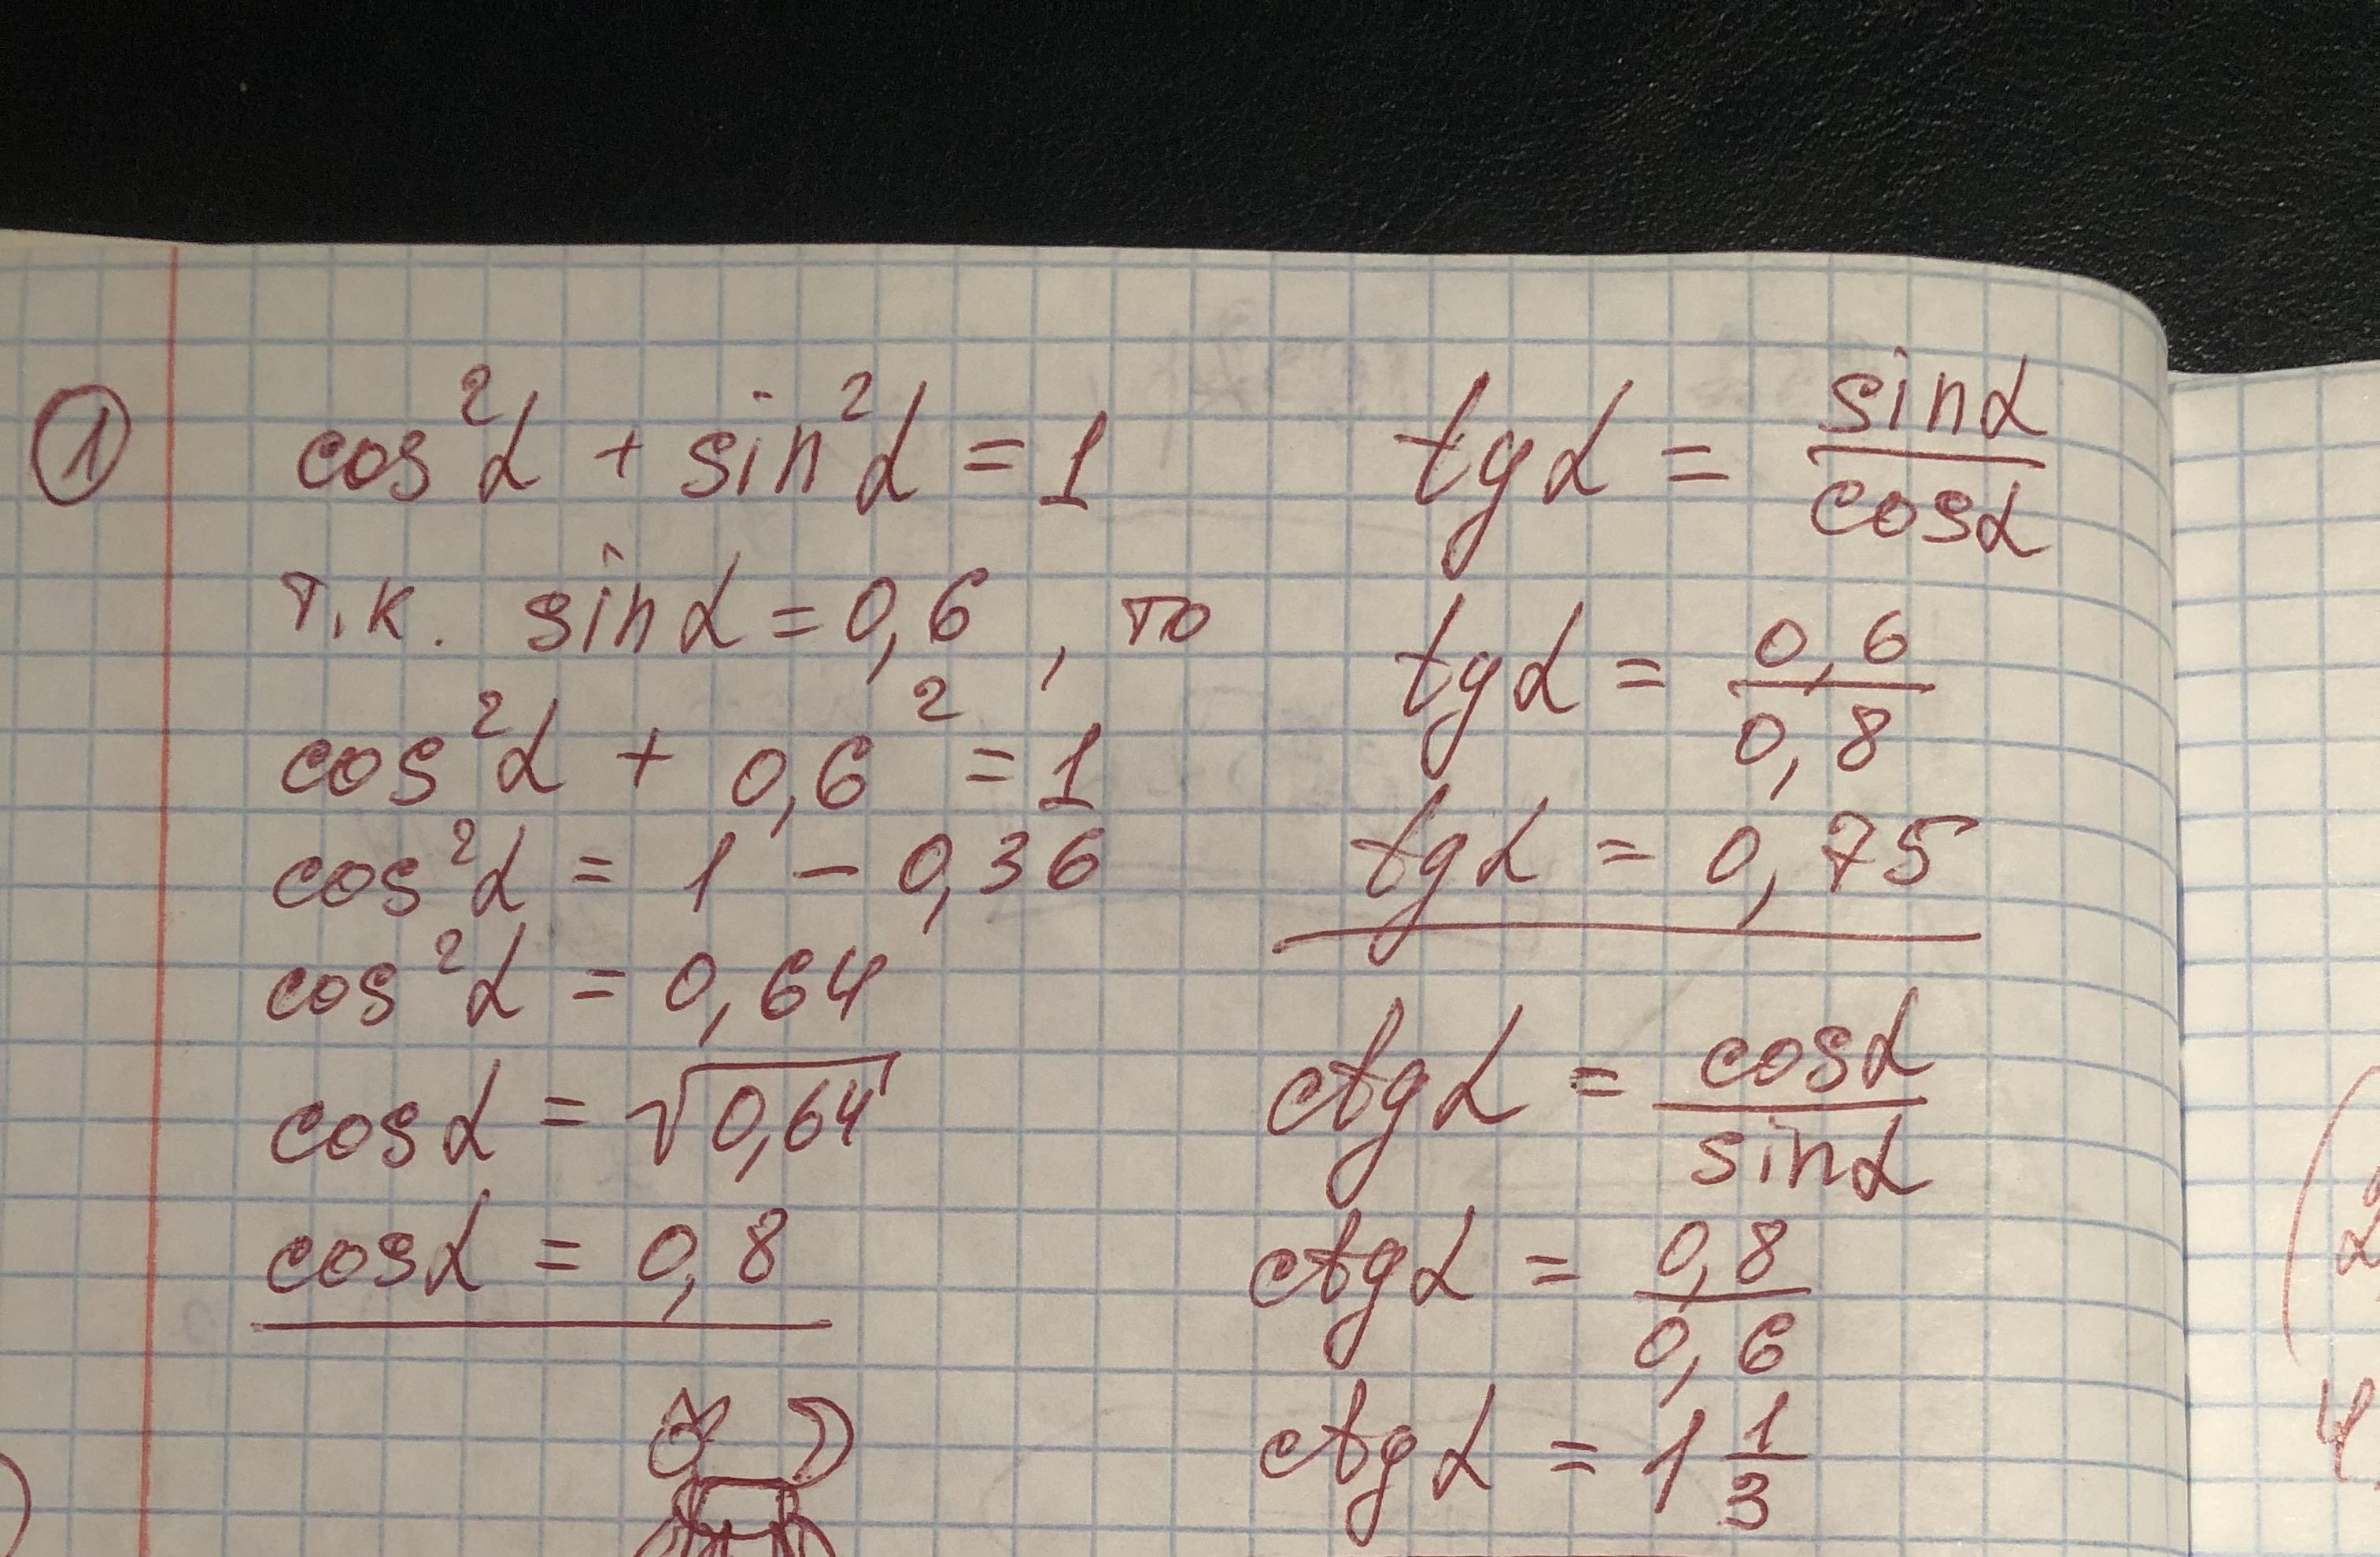 ①
cos²α + sin²α = 1
т.к. sinα = 0,6 , то
cos²α + 0,6² = 1
cos²α = 1 − 0,36
cos²α = 0,64
cosα = √0,64
cosα = 0,8
tgα = sinα/cosα
tgα = 0,6/0,8
tgα = 0,75
ctgα = cosα/sinα
ctgα = 0,8/0,6
ctgα = 1 1/3